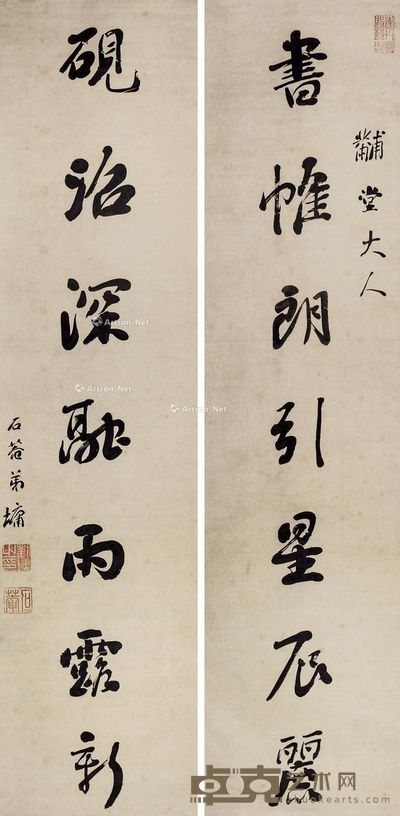 黼堂大人
書帷朗引星辰麗
硯沼深融雨露新
石菴弟墉
Artron.Net
Artron.Net
Artron.Net
Artron.Net
卓克艺术网
zhuokearts.com